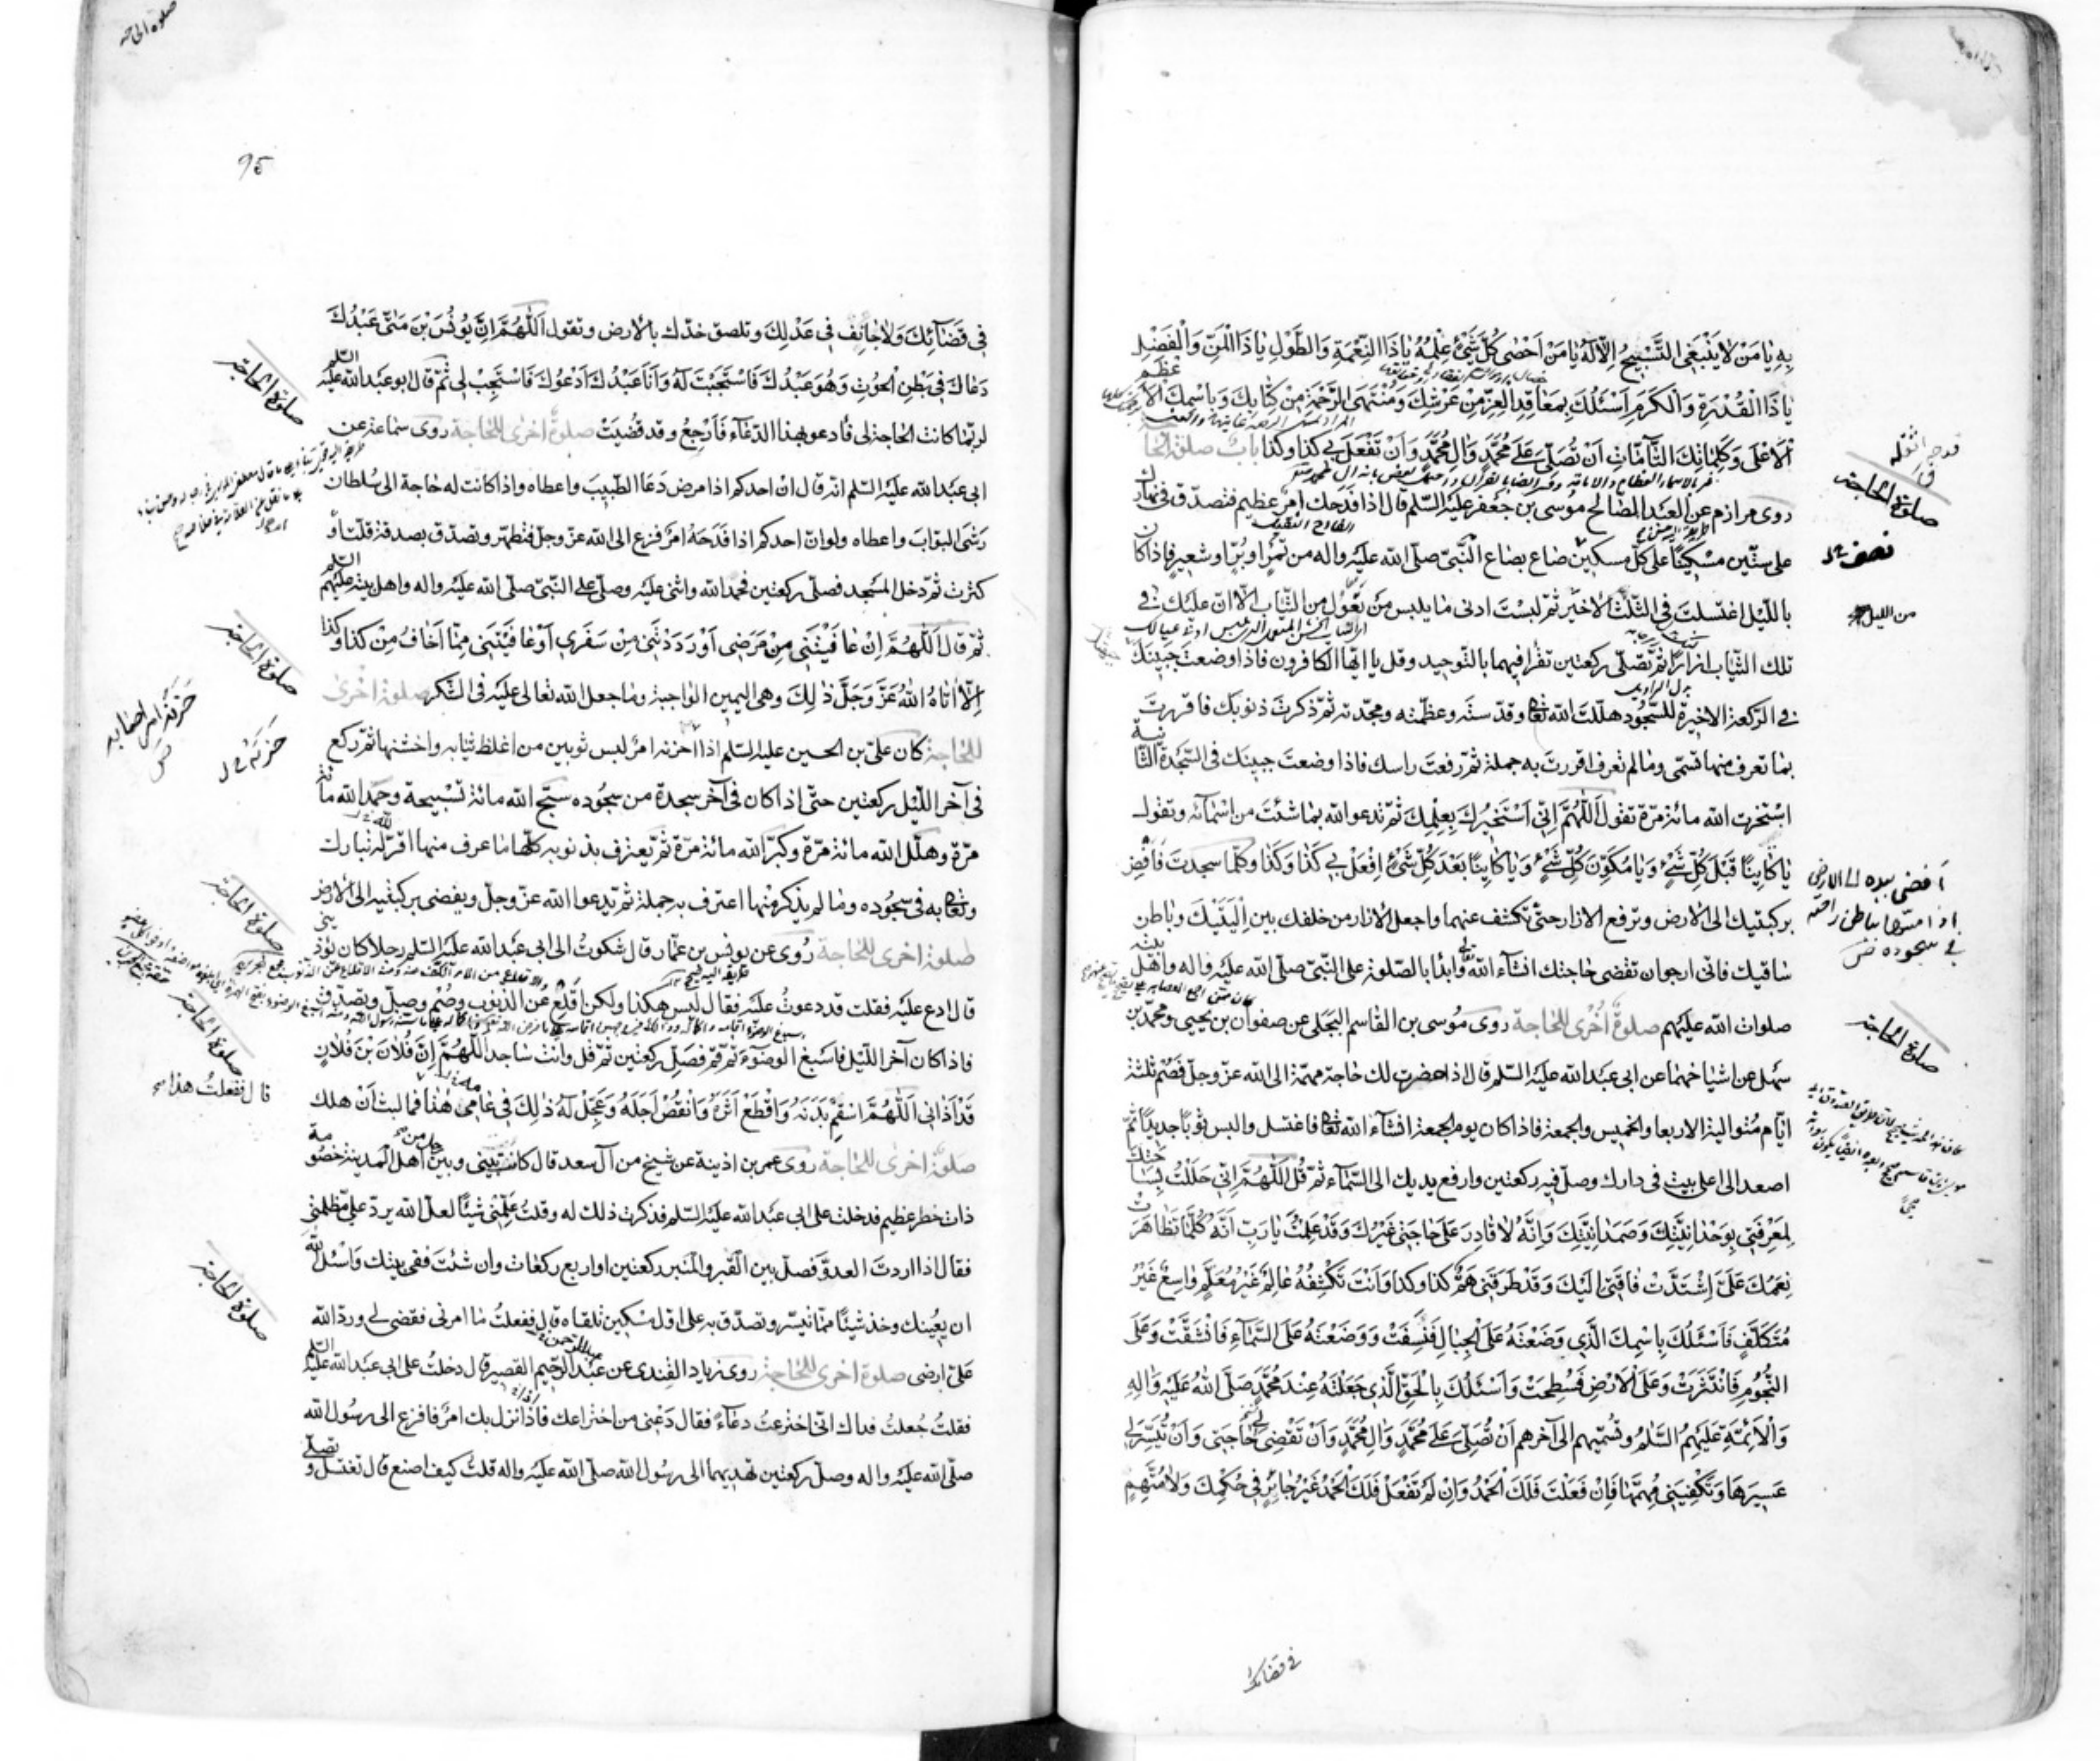 به يا من لا ينبغى التسبيح الا له يا من احصى كل شئ علمه يا ذا النعمة والطول يا ذا المن والفضل
يا ذا القدرة والكرم اسئلك بمعاقد العز من عرشك ومنتهى الرحمة من كتابك وباسمك الاعظم
الاعلى وكلماتك التامات ان تصلى على محمد وال محمد وان تفعل بى كذا وكذا باب صلوة الحاجة
روى مرازم عن العبد الصالح موسى بن جعفر عليه السلم قال اذا فدحك امر عظيم فتصدق فى نهارك
على ستين مسكينا على كل مسكين صاع بصاع النبى صلى الله عليه واله من تمر او بر او شعير فاذا كان
بالليل اغتسلت فى الثلث الاخير ثم لبست ادنى ما يلبس من تعول من الثياب الا ان عليك فى
تلك الثياب ازارا ثم تصلى ركعتين تقرا فيهما بالتوحيد وقل يا ايها الكافرون فاذا وضعت جبينك
فى الركعة الاخيرة للسجود هللت الله تعا وقدسته وعظمته ومجدته ثم ذكرت ذنوبك فاقررت
بما تعرف منها تسمى وما لم تعرف اقررت به جملة ثم رفعت راسك فاذا وضعت جبينك فى السجدة الثانية
استخرت الله مائة مرة تقول اللهم انى استخيرك بعلمك ثم تدعو الله بما شئت من اسمائه وتقول
يا كاينا قبل كل شئ ويا مكون كل شئ ويا كاينا بعد كل شئ افعل بى كذا وكذا وكلما سجدت فافض
بركبتيك الى الارض وترفع الازار حتى تكشف عنهما واجعل الازار من خلفك بين اليتيك وباطن
ساقيك فانى ارجو ان تقضى حاجتك انشاء الله تعالى وابدا بالصلوة على النبى صلى الله عليه واله واهل بيته
صلوات الله عليهم صلوة اخرى للحاجة روى موسى بن القاسم البجلى عن صفوان بن يحيى ومحمد بن
سهل عن اشياخهما عن ابى عبد الله عليه السلم قال اذا حضرت لك حاجة مهمة الى الله عز وجل فصم ثلثة
ايام متوالية الاربعا والخميس والجمعة فاذا كان يوم الجمعة انشاء الله تعا فاغتسل والبس ثوبا جديدا ثم
اصعد الى اعلى بيت فى دارك وصل فيه ركعتين وارفع يديك الى السماء ثم قل اللهم انى حللت بساحتك
لمعرفتى بوحدانيتك وصمدانيتك وانه لا قادر على حاجتى غيرك وقد علمت يا رب انه كلما تظاهرت
نعمك على اشتدت فاقتى اليك وقد طرقنى هم كذا وكذا وانت تكشفه عالم غير معلم واسع غير
متكلف فاسئلك باسمك الذي وضعته على الجبال فنسفت ووضعته على السماء فانشقت وعلى
النجوم فانتثرت وعلى الارض فسطحت واسئلك بالحق الذي جعلته عند محمد صلى الله عليه واله
والائمة عليهم السلم وتسميهم الى آخرهم ان تصلى على محمد وال محمد وان تقضى لى حاجتى وان تيسر لى
عسيرها وتكفينى مهمها فان فعلت فلك الحمد وان لم تفعل فلك الحمد غير جائر فى حكمك ولا متهم
صلوة الحاجة
نصف
من الليل
افضى بيده الى الارض
اذا مسها بباطن راحته
فى سجوده
صلوة الحاجة
فى قضائك
صلوة الحاجة
95
فى قضائك ولا حائف فى عدلك وتلصق خدك بالارض وتقول اللهم ان يونس بن متى عبدك
دعاك فى بطن الحوت وهو عبدك فاستجبت له وانا عبدك ادعوك فاستجب لى ثم قال ابو عبد الله عليه السلم
لربما كانت الحاجة لى فادعو بهذا الدعاء فارجع وقد قضيت صلوة اخرى للحاجة روى سماعة عن
ابى عبد الله عليه السلم انه قال ان احدكم اذا مرض دعا الطبيب واعطاه واذا كانت له حاجة الى سلطان
رشى البواب واعطاه ولو ان احدكم اذا فدحه امر فزع الى الله عز وجل فتطهر وتصدق بصدقة قلت او
كثرت ثم دخل المسجد فصلى ركعتين فحمد الله واثنى عليه وصلى على النبى صلى الله عليه واله واهل بيته عليهم السلم
ثم قال اللهم ان عافيتنى من مرضى او رددتنى من سفرى او عافيتنى مما اخاف من كذا وكذا
الا اتاه الله عز وجل ذلك وهى اليمين الواجبة وما جعل الله تعالى عليه فى الشكر صلوة اخرى
للحاجة كان على بن الحسين عليه السلم اذا احزنه امر لبس ثوبين من اغلظ ثيابه واخشنها ثم ركع
فى آخر الليل ركعتين حتى اذا كان فى آخر سجدة من سجوده سبح الله مائة تسبيحة وحمد الله مائة
مرة وهلل الله مائة مرة وكبر الله مائة مرة ثم يعترف بذنوبه كلها ما عرف منها اقر له تبارك
وتعا به فى سجوده وما لم يذكر منها اعترف به جملة ثم يدعوا الله عز وجل ويفضى بركبتيه الى الارض
صلوة اخرى للحاجة روى عن يونس بن عمار قال شكوت الى ابى عبد الله عليه السلم رجلا كان يؤذينى
قال ادع عليه فقلت قد دعوت عليه فقال ليس هكذا ولكن اقلع عن الذنوب وصم وصل وتصدق
فاذا كان آخر الليل فاسبغ الوضوء ثم قم فصل ركعتين ثم قل وانت ساجد اللهم ان فلان بن فلان
قد آذانى اللهم اسقم بدنه واقطع اثره وانقص اجله وعجل له ذلك فى عامى هذا فما لبث ان هلك
صلوة اخرى للحاجة روى عمر بن اذينة عن شيخ من آل سعد قال كانت بينى وبين رجل من اهل المدينة خصومة
ذات خطر عظيم فدخلت على ابى عبد الله عليه السلم فذكرت ذلك له وقلت علمنى شيئا لعل الله يرد على مظلمتى
فقال اذا اردت العدو فصل بين القبر والمنبر ركعتين او اربع ركعات وان شئت ففى بيتك واسئل الله
ان يعينك وخذ شيئا مما تيسر وتصدق به على اول مسكين تلقاه قال ففعلت ما امرنى فقضى لى ورد الله
على ارضى صلوة اخرى للحاجة روى زياد القندى عن عبد الرحيم القصير قال دخلت على ابى عبد الله عليه السلم
فقلت جعلت فداك انى اخترعت دعاء فقال دعنى من اختراعك فاذا نزل بك امر فافزع الى رسول الله
صلى الله عليه واله وصل ركعتين تهديهما الى رسول الله صلى الله عليه واله قلت كيف اصنع قال تغتسل وتصلى
صلوة الحاجة
صلوة الحاجة
صلوة الحاجة
صلوة الحاجة
قال ففعلت هذا
صلوة الحاجة